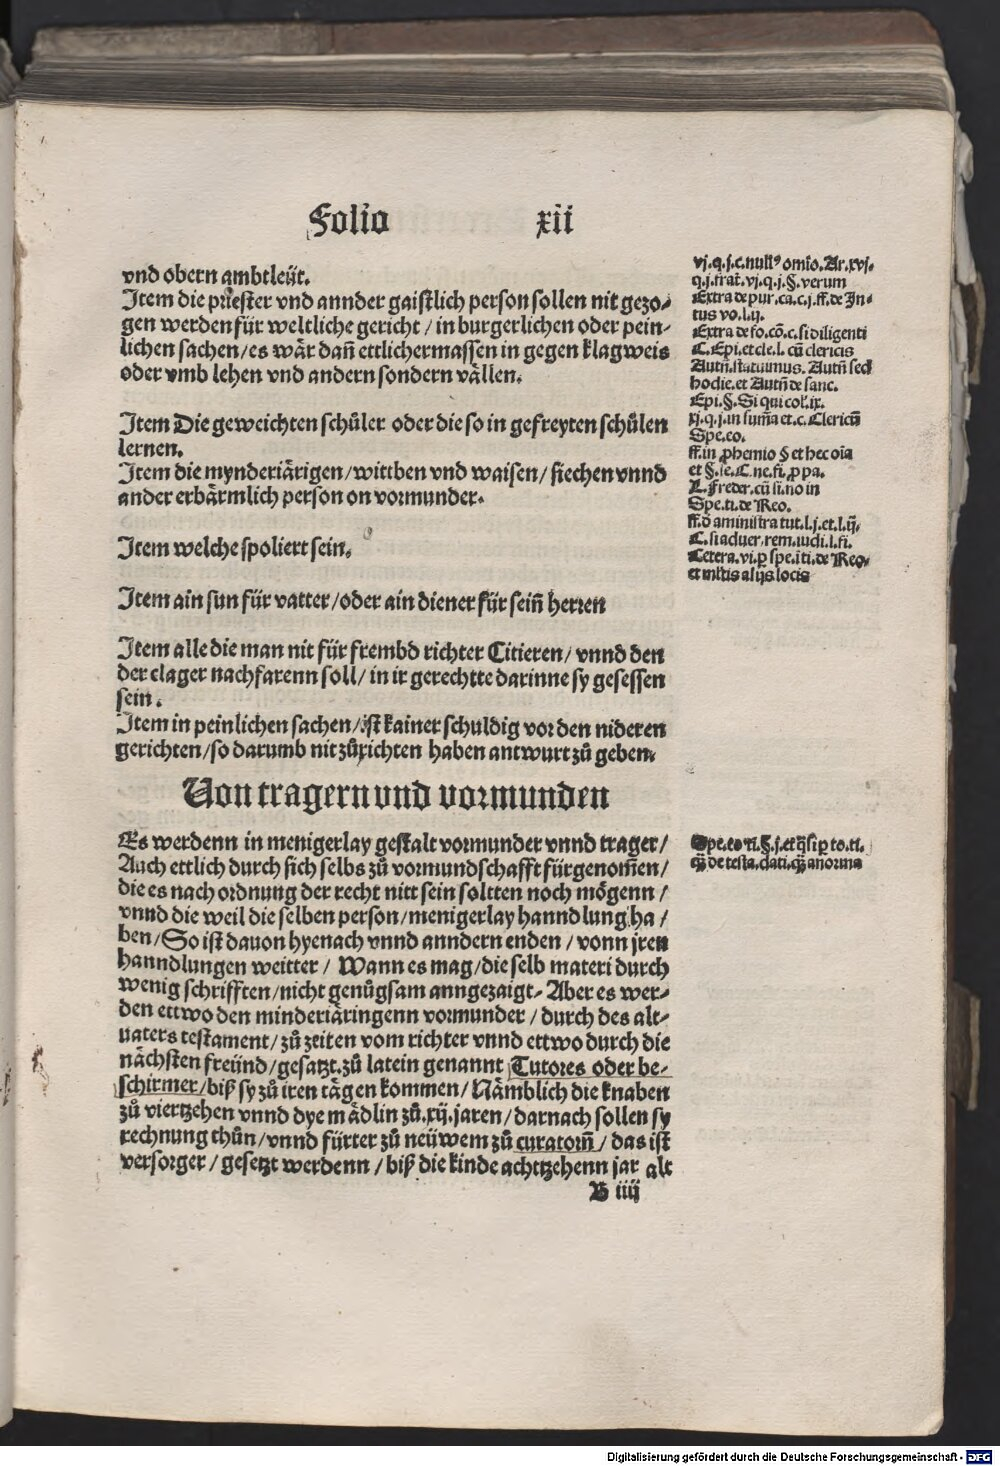 Folio xii
vnd obern ambtleüt.
Item die priester vnd annder gaistlich person sollen nit gezo-
gen werden für weltliche gericht / in burgerlichen oder pein-
lichen sachen / es wär dañ ettlichermassen in gegen klagweis
oder vmb lehen vnd andern sondern vällen.
Item Die geweichten schůler oder die so in gefreyten schůlen
lernen.
Item die mynderiärigen / wittben vnd waisen / siechen vnnd
ander erbärmlich person on vormunder.
Item welche spoliert sein.
Item ain sun für vatter / oder ain diener für seiñ herren
Item alle die man nit für frembd richter Citieren / vnnd den
der clager nachfarenn soll / in ir gerechtte darinne sy gesessen
sein.
Item in peinlichen sachen / ist kainer schuldig vor den nideren
gerichten / so darumb nit zůrichten haben antwurt zů geben.
Von tragern vnd vormunden
Es werdenn in menigerlay gestalt vormunder vnnd trager /
Auch ettlich durch sich selbs zů vormundschafft fürgenom̄en /
die es nach ordnung der recht nitt sein soltten noch mögenn /
vnnd die weil die selben person / menigerlay hanndlung ha /
ben / So ist dauon hyenach vnnd anndern enden / vonn jren
hanndlungen weitter / Wann es mag / die selb materi durch
wenig schrifften / nicht genůgsam anngezaigt. Aber es wer-
den ettwo den minderiäringenn vormunder / durch des alt-
uaters testament / zů zeiten vom richter vnnd ettwo durch die
nächsten freünd / gesatzt. zů latein genannt Tutores oder be-
schirmer / biß sy zů iren tägen kommen / Nämblich die knaben
zů viertzehen vnnd dye mädlin zů .xij. jaren / darnach sollen sy
rechnung thůn / vnnd fürter zů neüwem zů curatorñ / das ist
versorger / gesetzt werdenn / biß die kinde achttzehenn jar alt
B iiij
vj.q.j.c.null⁹ omīo. Ar.xvj.
q.j.frat̄. vj.q.j.§.verum
Extra de pur.ca.c.j.ff.de In-
tus vo.l.ij.
Extra de fo.cō.c.si diligenti
C.Epi.et cle.l. cū clericis
Autñ.statuimus. Autñ sed
hodie.et Autñ de sanc.
Epi.§.Si qui col.ix.
xj.q.j.in sum̄a et.c.Clericū
Spe.eo.
ff.in ꝓhemio § et hec oīa
et §.se.C.ne.fi.ꝓ pa.
L.Freder.cū si.no in
Spe.ti.de Reo.
ff.ď aministra tut.l.j.et.l.ij.
C.si aduer.rem.iudi.l.fi.
Cetera.vi.ꝑ spe.ī ti.de Reo.
et ml̄tis alijs locis
Spe.eo ti.§.j.et q̄si ꝑ to.ti.